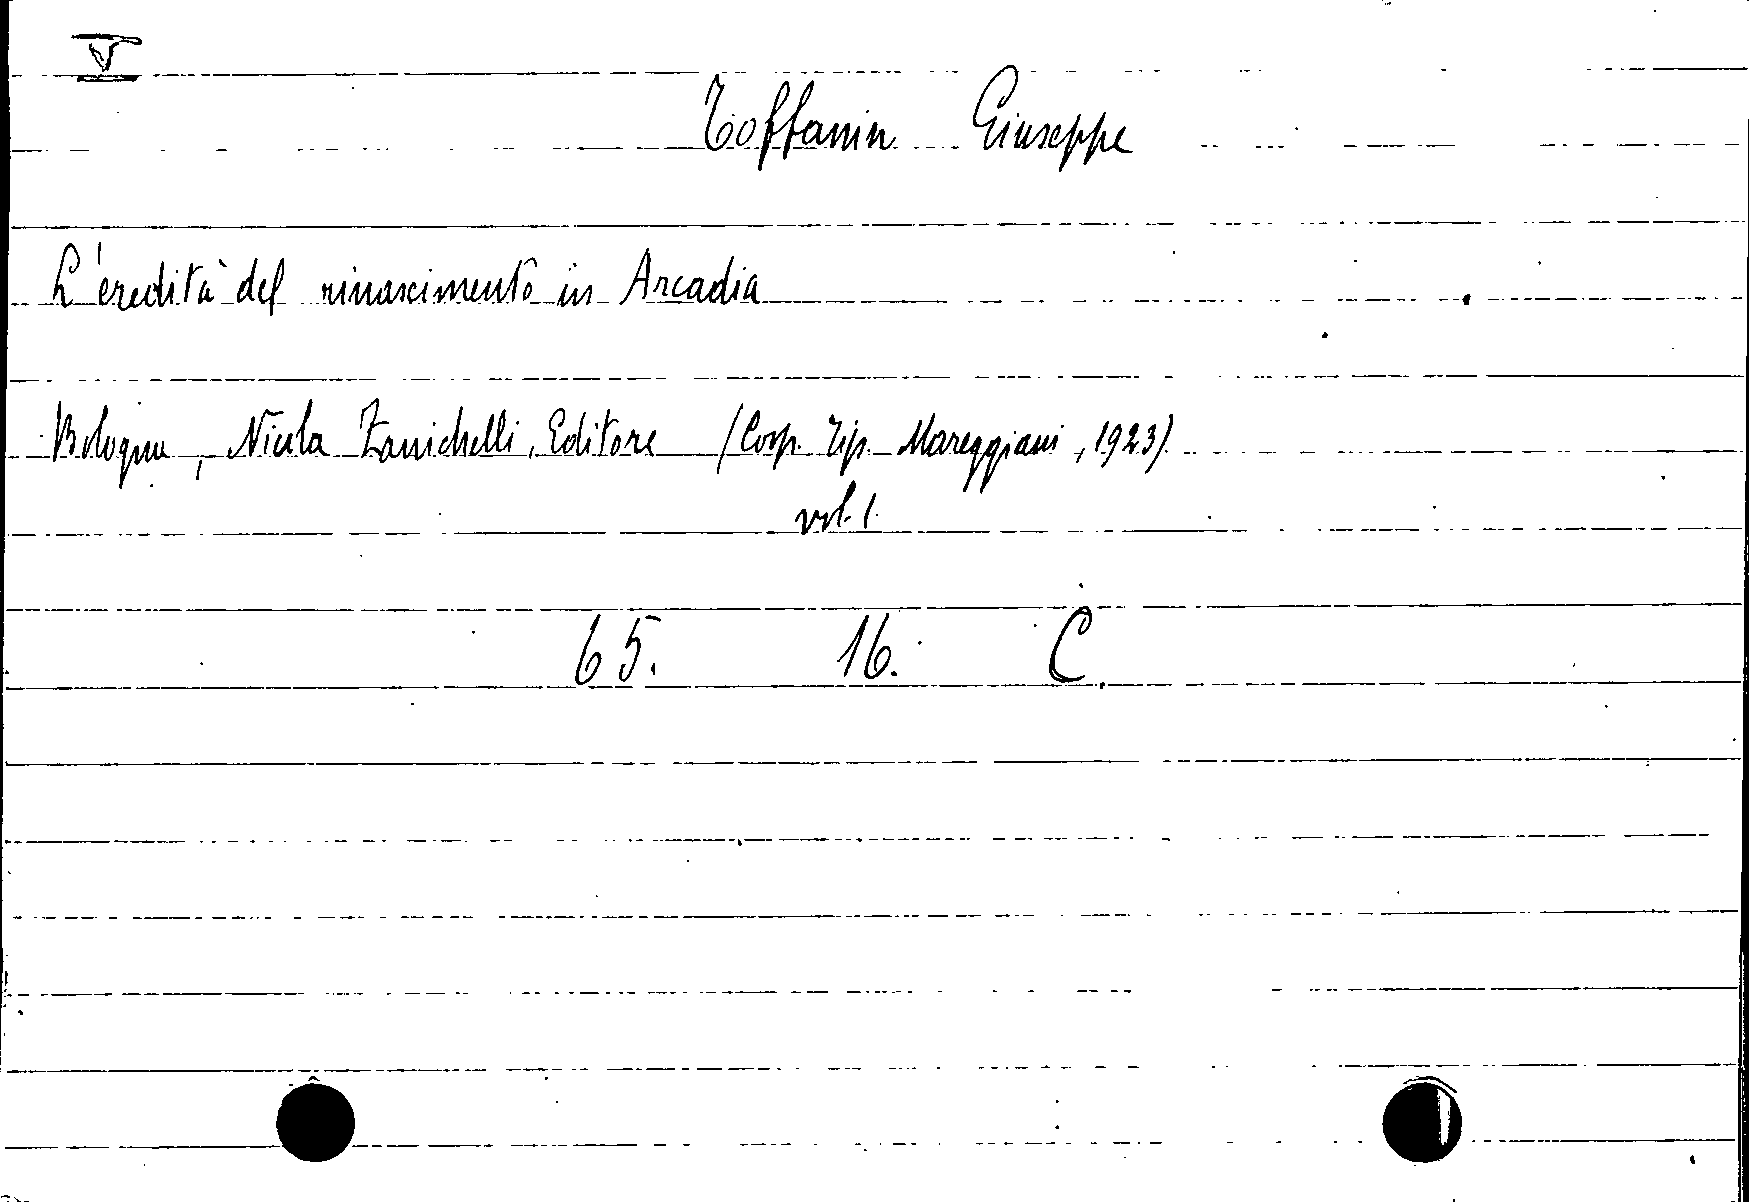 V
Toffanin Giuseppe
L'eredità del rinascimento in Arcadia
Bologna, Nicola Zanichelli, Editore (Coop. Tip. Mareggiani, 1923).
vol. 1.
65. 16. C.